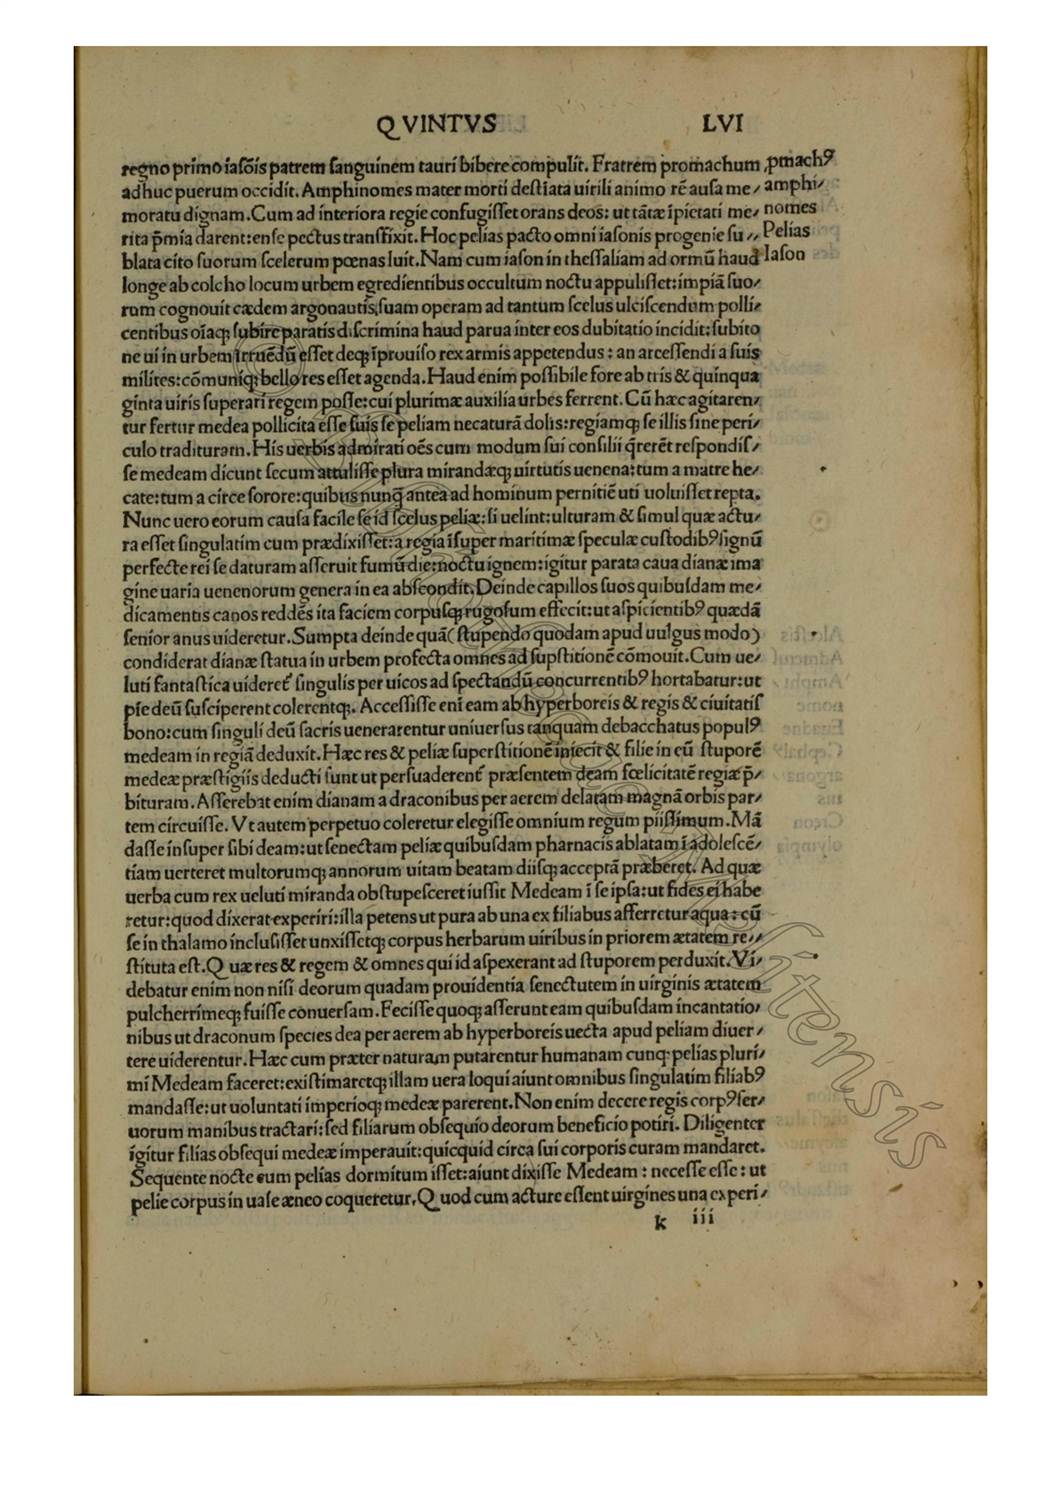 QVINTVS LVI
regno primo iasōis patrem ſanguinem tauri bibere compulit. Fratrem promachum
adhuc puerum occidit. Amphinomes mater morti deſtīata uirili animo rē auſa me/
moratu dignam. Cum ad interiora regie confugiſſet orans deos: ut tātæ īpietati me/
rita p̄mia darent: enſe pectus tranſfixit. Hoc pelias pacto omni iaſonis progenie ſu//
blata cito ſuorum ſcelerum pœnas luit. Nam cum iaſon in theſſaliam ad ormū haud
longe ab colcho locum urbem egredientibus occultum noctu appuliſſet: impiā ſuo/
rum cognouit cædem argonautis, ſuam operam ad tantum ſcelus ulciſcendum polli/
centibus oīaq; ſubire paratis diſcrimina haud parua inter eos dubitatio incidit: ſubito
ne ui in urbem irruēdū eſſet deq; īprouiſo rex armis appetendus: an arceſſendi a ſuis
milites: cōmuniq; bello res eſſet agenda. Haud enim poſſibile fore ab tris & quinqua
ginta uiris ſuperari regem poſſe: cui plurimæ auxilia urbes ferrent. Cū hæc agitaren/
tur fertur medea pollicita eſſe ſuis ſe peliam necaturā dolis: regiamq; ſe illis ſine peri/
culo tradituram. His uerbis admirati oēs cum modum ſui conſilii q̄rerēt reſpondiſ/
ſe medeam dicunt ſecum attuliſſe plura mirandæq; uirtutis uenena: tum a matre he/
cate: tum a circe ſorore: quibus nunq̄ antea ad hominum pernitiē uti uoluiſſet repta.
Nunc uero eorum cauſa facile ſe id ſcelus peliæ: ſi uelint: ulturam & ſimul quæ actu/
ra eſſet ſingulatim cum prædixiſſet: a regia īſuper maritimæ ſpeculæ cuſtodibꝰ ſignū
perfecte rei ſe daturam aſſeruit fumū die: noctu ignem: igitur parata caua dianæ ima
gine uaria uenenorum genera in ea abſcondit. Deinde capillos ſuos quibuſdam me/
dicamentis canos reddēs ita faciem corpuſq; rugoſum effecit: ut aſpicientibꝰ quædā
ſenior anus uideretur. Sumpta deinde quā( ſtupendo quodam apud uulgus modo)
condiderat dianæ ſtatua in urbem profecta omnes ad ſupſtitionē cōmouit. Cum ue/
luti fantaſtica uideret᷑ ſingulis per uicos ad ſpectandū concurrentibꝰ hortabatur: ut
pie deū ſuſciperent colerentq;. Acceſſiſſe enī eam ab hyperboreis & regis & ciuitatiſ
bono: cum ſinguli deū ſacris uenerarentur uniuerſus tanquam debacchatus populꝰ
medeam in regiā deduxit. Hæc res & peliæ ſuperſtitionē iniecit & filie in eū ſtuporē
medeæ præſtigiis deducti ſunt ut perſuaderent᷑ præſentem deam fœlicitatē regiæ p̄/
bituram. Aſſerebat enim dianam a draconibus per aerem delatam magnā orbis par/
tem circuiſſe. Vt autem perpetuo coleretur elegiſſe omnium regum piiſſimum. Mā
daſſe inſuper ſibi deam: ut ſenectam peliæ quibuſdam pharnacis ablatam ī adoleſcē/
tiam uerteret multorumq; annorum uitam beatam diiſq; acceptā præberet. Ad quæ
uerba cum rex ueluti miranda obſtupeſceret iuſſit Medeam ī ſe ipſa: ut fides ei habe
retur: quod dixerat experiri: illa petens ut pura ab una ex filiabus afferretur aqua: cū
ſe in thalamo incluſiſſet unxiſſetq; corpus herbarum uiribus in priorem ætatem re//
ſtituta eſt. Quæ res & regem & omnes qui id aſpexerant ad ſtuporem perduxit. Vi/
debatur enim non niſi deorum quadam prouidentia ſenectutem in uirginis ætatem
pulcherrimeq; fuiſſe conuerſam. Feciſſe quoq; aſſerunt eam quibuſdam incantatio/
nibus ut draconum ſpecies dea per aerem ab hyperboreis uecta apud peliam diuer/
tere uiderentur. Hæc cum præter naturam putarentur humanam cunq; pelias pluri/
mi Medeam faceret: exiſtimaretq; illam uera loqui aiunt omnibus ſingulatim filiabꝰ
mandaſſe: ut uoluntati imperioq; medeæ parerent. Non enim decere regis corpꝰ ſer/
uorum manibus tractari: ſed filiarum obſequio deorum beneficio potiri. Diligenter
igitur filias obſequi medeæ imperauit: quicquid circa ſui corporis curam mandaret.
Sequente nocte cum pelias dormitum iſſet: aiunt dixiſſe Medeam: neceſſe eſſe: ut
pelie corpus in uaſe æneo coqueretur. Quod cum acture eſſent uirgines una experi/
k iii
ꝓmachꝰ
amphi/
nomes
Pelias
Iaſon